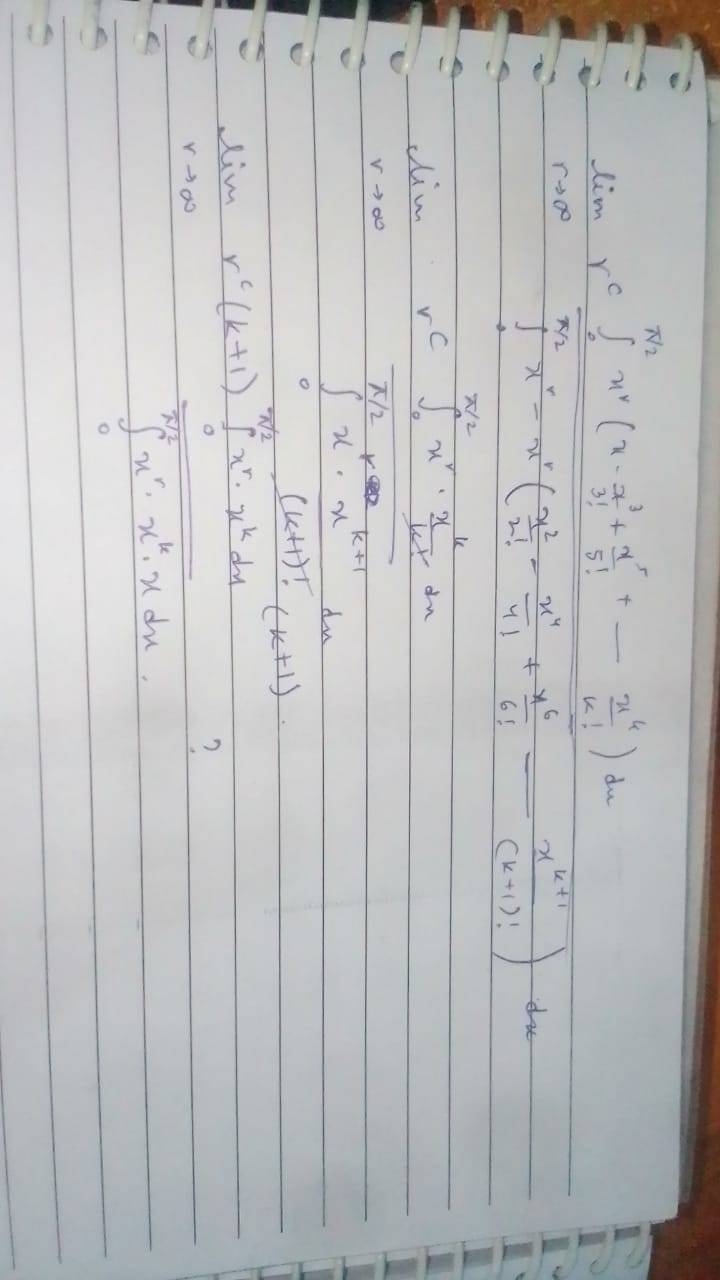 lim r^c ∫_0^{π/2} x^r (x - x^3/3! + x^5/5! + — x^k/k!) dx
r→∞
∫_0^{π/2} x^r - x^r (x^2/2! - x^4/4! + x^6/6! — x^{k+1}/(k+1)!) dx
lim r^c ∫_0^{π/2} x^r · x^k/k! dx
r→∞
∫_0^{π/2} x^r · x^{k+1} dx
(k+1)! (k+1).
lim r^c (k+1) ∫_0^{π/2} x^r · x^k dx
r→∞ ?
∫_0^{π/2} x^r · x^k · x dx.